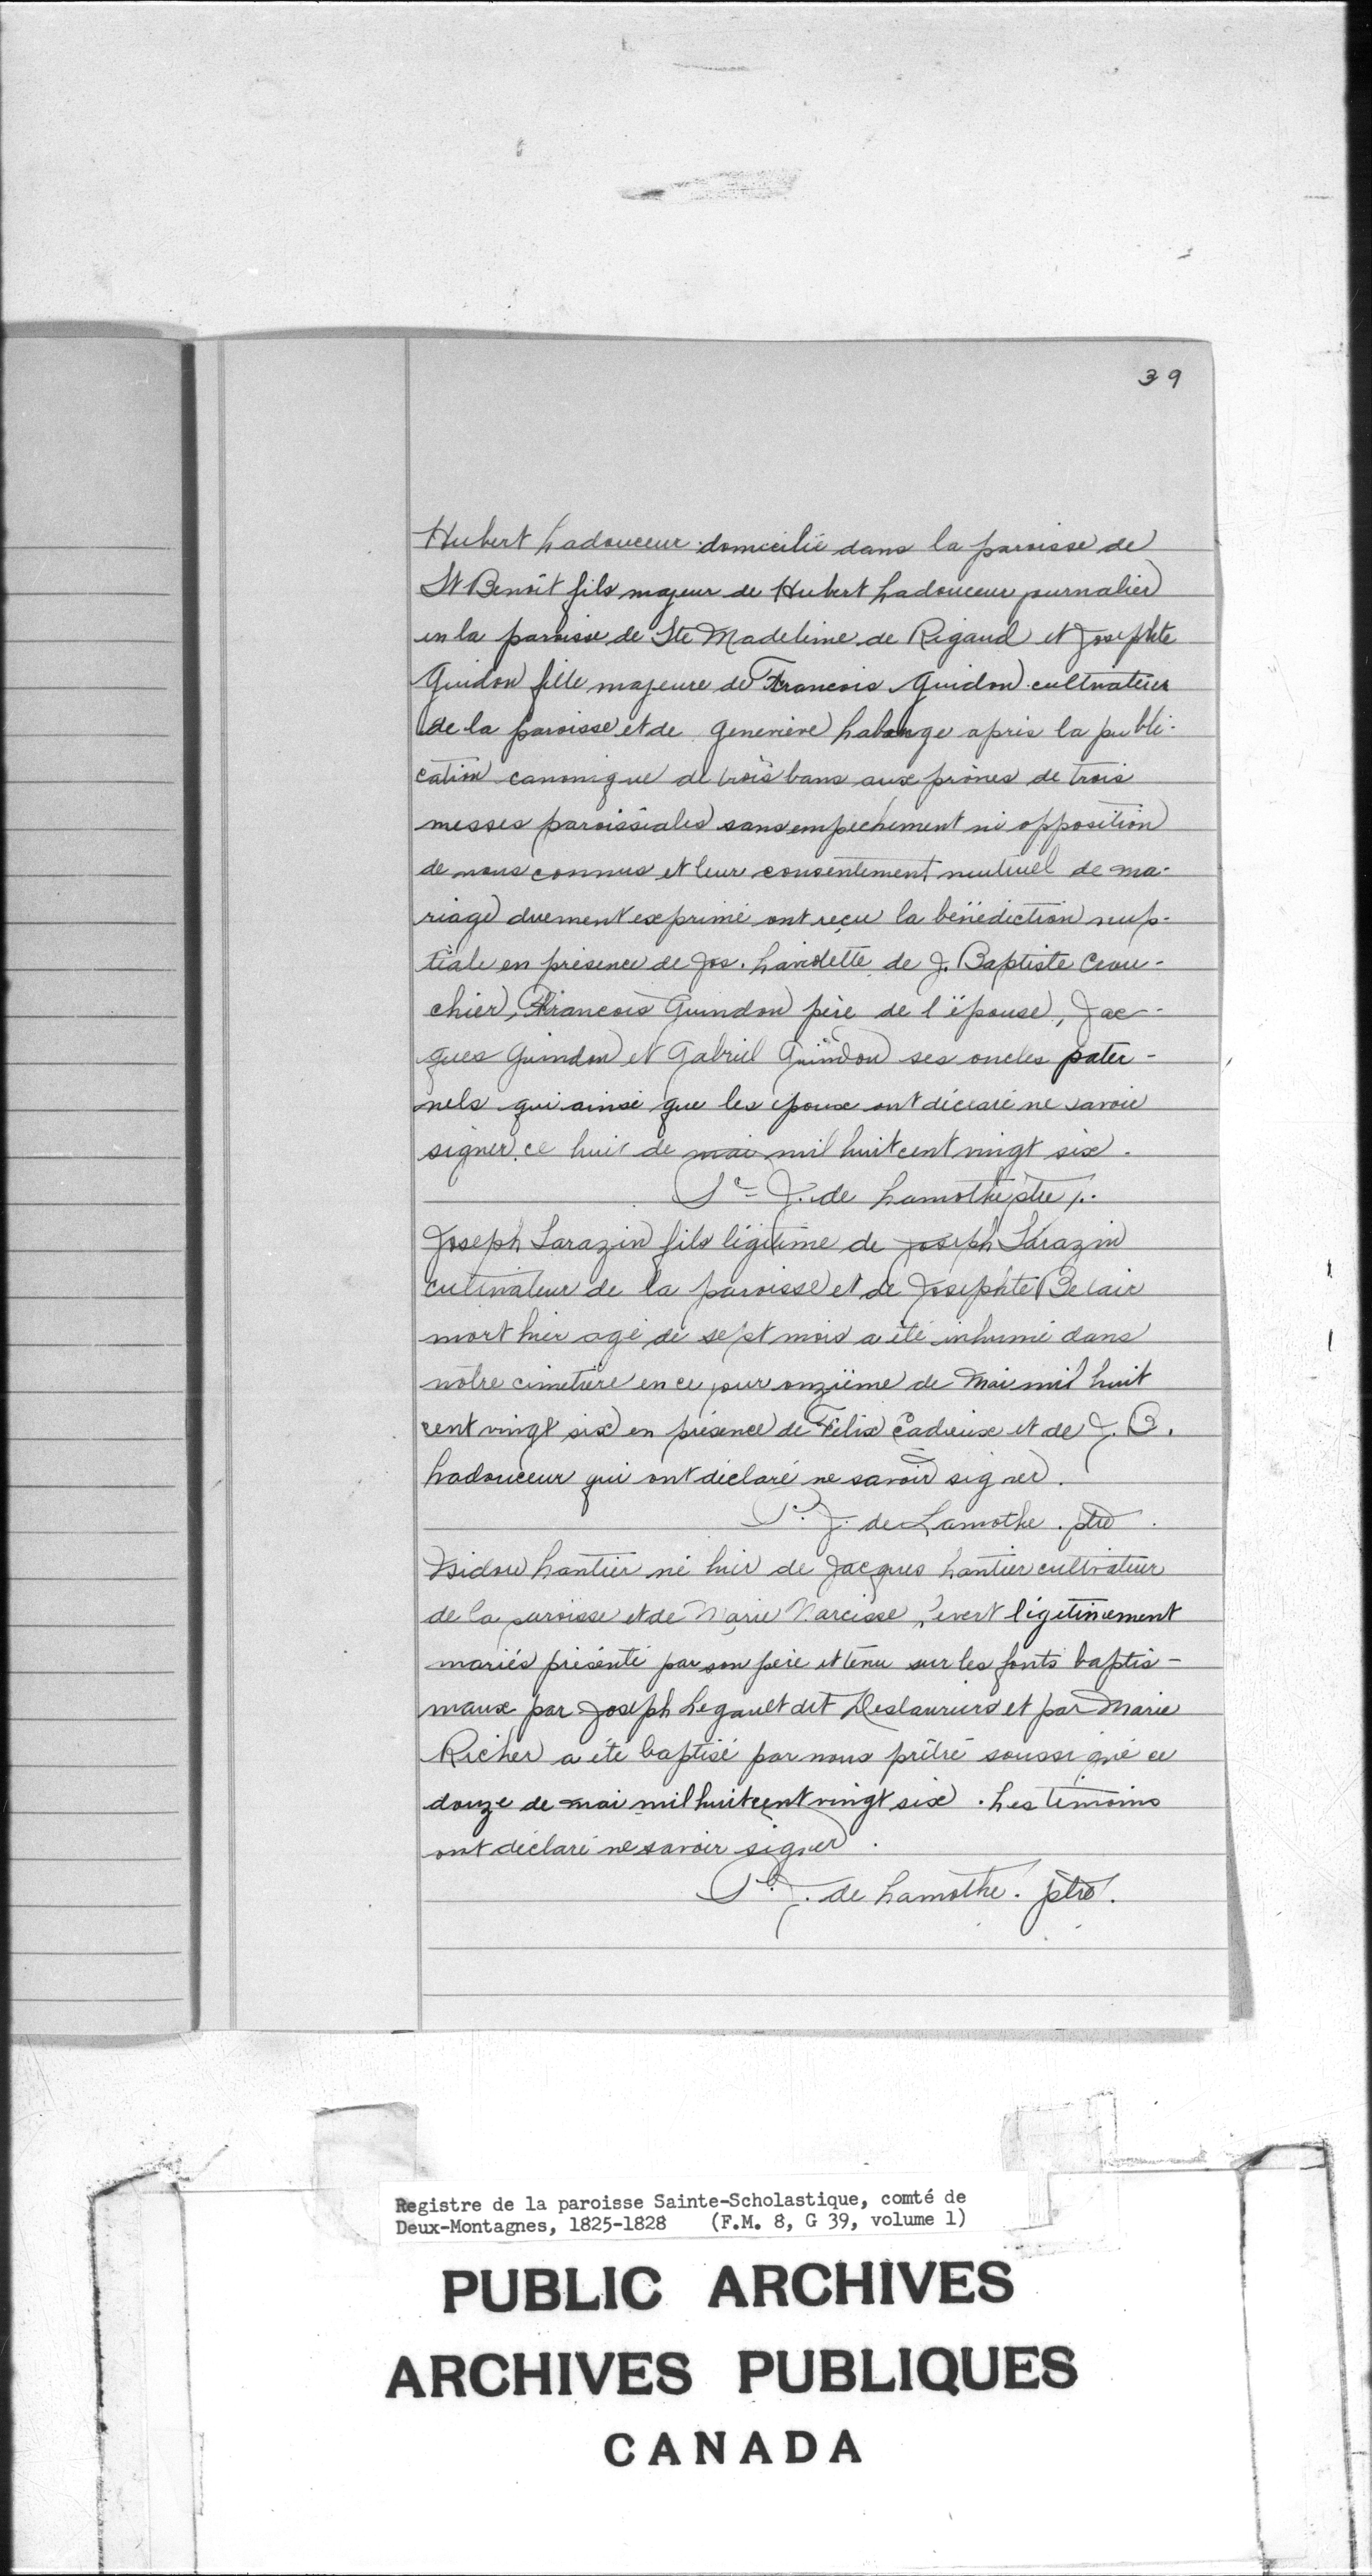 39
Hubert Ladouceur domicilié dans la paroisse de
St Benoît fils majeur de Hubert Ladouceur journalier
en la paroisse de Ste Madeleine de Rigaud et Josephte
Guidon fille majeure de Francois Guidon cultivateur
de la paroisse et de Geneviève Labange après la publi-
cation canonique de trois bans aux prônes de trois
messes paroissiales sans empechement ni opposition
de nous connus et leur consentement mutuel de ma-
riage duement exprimé ont reçu la bénédiction nup-
tiale en présence de Jos. Laviolette de J. Baptiste
chier, Francois Guindon père de l'épouse, Jac-
ques Guindon et Gabriel Guindon ses oncles pater-
nels qui ainsi que les époux ont déclaré ne savoir
signer ce huit de mai mil huit cent vingt six.
Pc= J. de Lamothe ptre
Joseph Sarazin fils légitime de Joseph Sarazin
cultivateur de la paroisse et de Josephte Belair
mort hier agé de sept mois a été inhumé dans
nôtre cimetière en ce jour onzième de Mai mil huit
cent vingt six en présence de Felix Cadieux et de J. B.
Ladouceur qui ont déclaré ne savoir signer.
Pc. J. de Lamothe. ptre.
Isidore Lantier né hier de Jacques Lantier cultivateur
de la paroisse et de Marie Narcisse légitimement
mariés présenté par son père et tenu sur les fonts baptis-
maux par Joseph Legault dit Deslauriers et par Marie
Richer a été baptisé par nous prêtre soussigné ce
douze de mai mil huit cent vingt six. Les témoins
ont déclaré ne savoir signer.
Pc. J. de Lamothe. ptre.
Registre de la paroisse Sainte-Scholastique, comté de
Deux-Montagnes, 1825-1828 (F.M. 8, G 39, volume 1)
PUBLIC ARCHIVES
ARCHIVES PUBLIQUES
CANADA